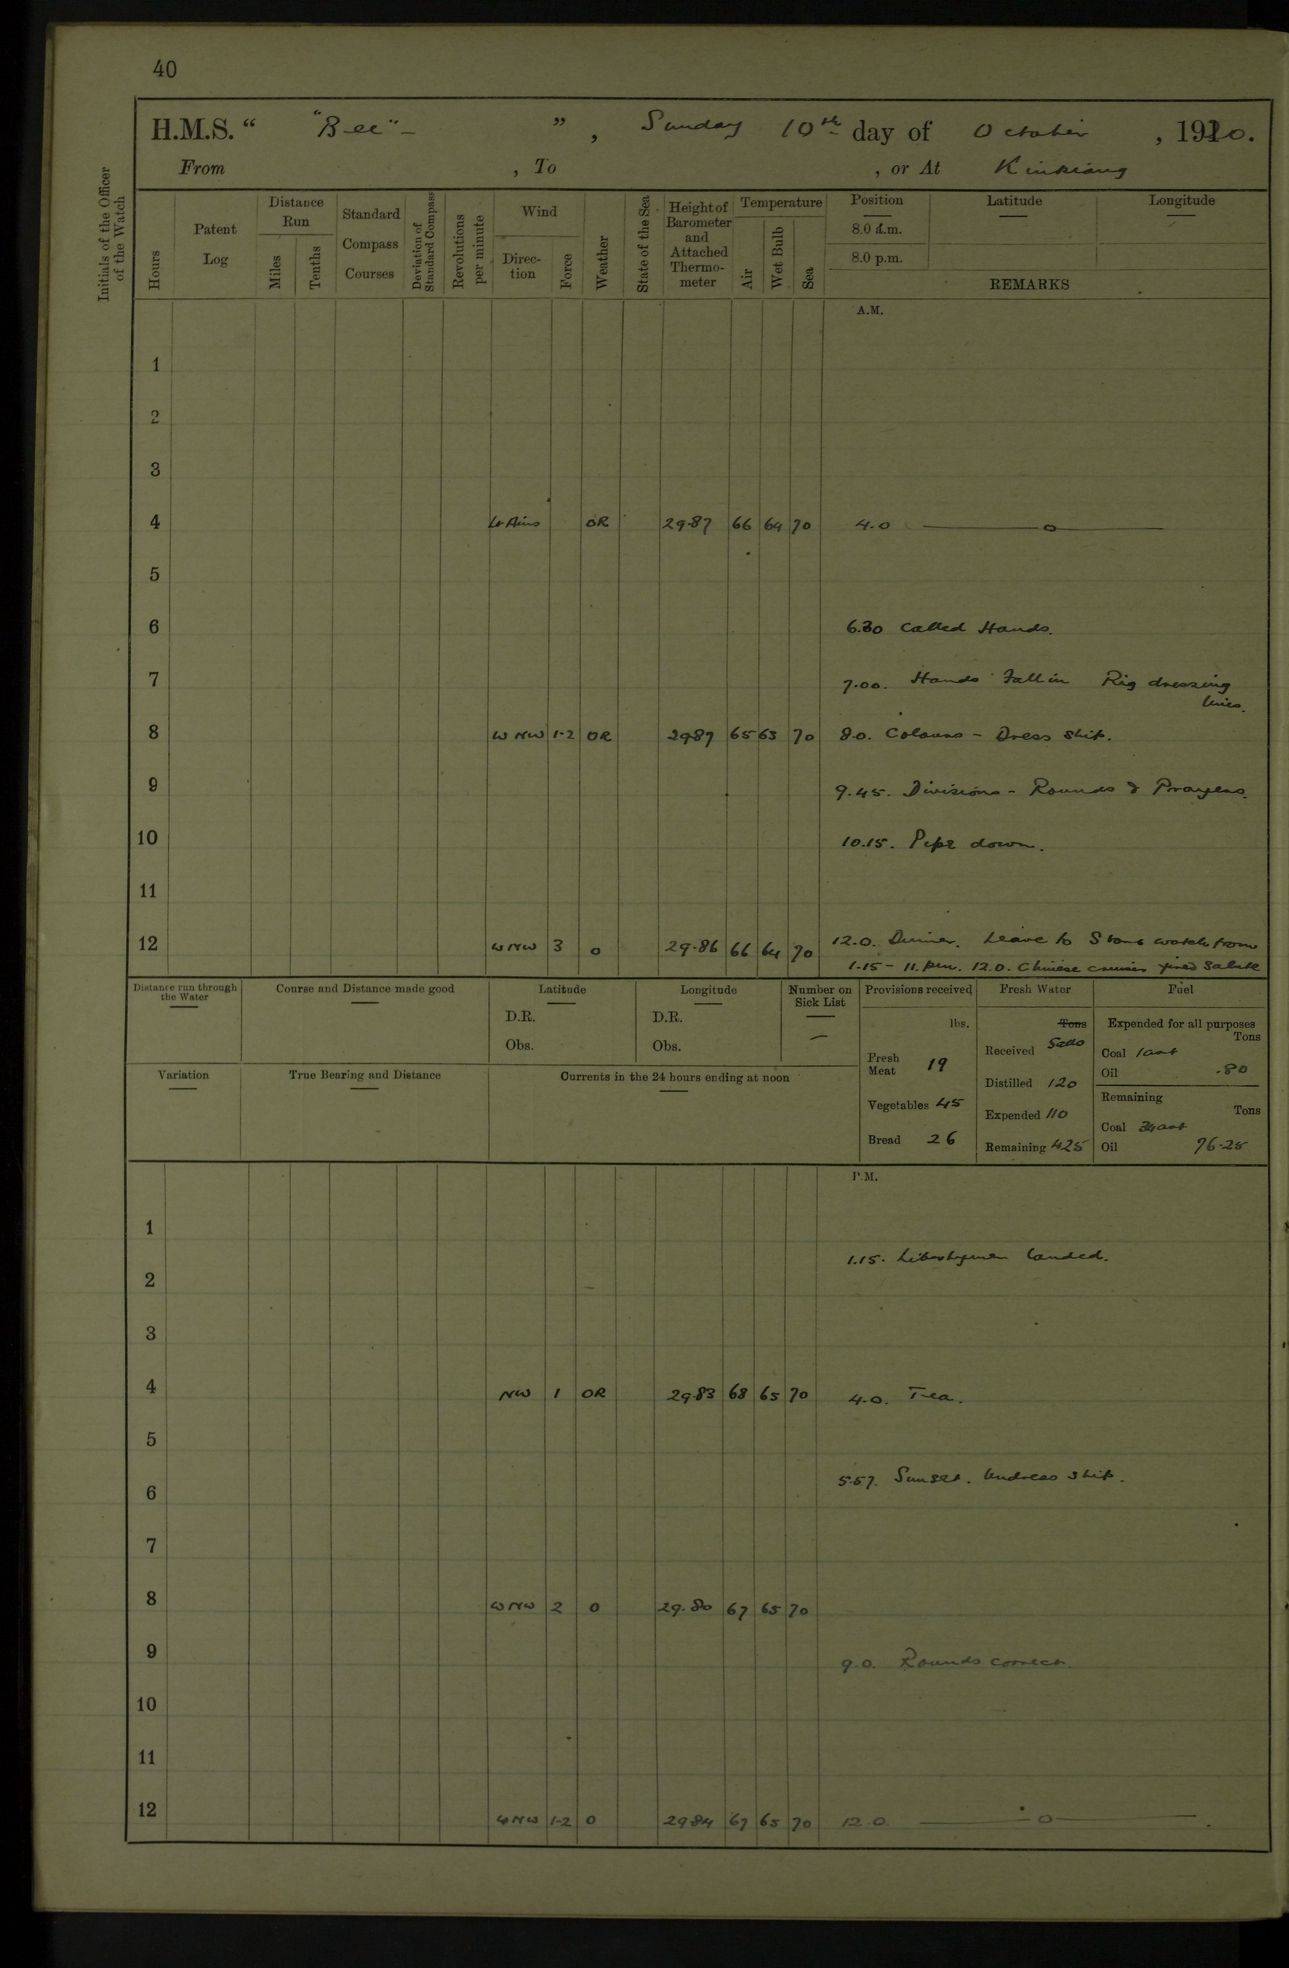 40
H.M.S. " "Bee" - ", Sunday 10th day of October, 1920.
From , To , or At Kiukiang
Initials of the Officer of the Watch
Hours
Patent Log
Distance Run
Miles
Tenths
Standard Compass Courses
Deviation of Standard Compass
Revolutions per minute
Wind
Direction
Force
Weather
State of the Sea
Height of Barometer and Attached Thermometer
Temperature
Air
Wet Bulb
Sea
Position
8.0 a.m.
8.0 p.m.
Latitude
Longitude
REMARKS
A.M.
1
2
3
4 Lt Airs OR 29.87 66 64 70 4.0
5
6 6.30 Called Hands.
7 7.00. Hands Fall in Rig dressing
lines.
8 WNW 1-2 OR 29.87 65 63 70 8.0. Colours - Dress Ship.
9 9.45. Divisions - Rounds & Prayers.
10 10.15. Pipe down.
11
12 WNW 3 O 29.86 66 64 70 12.0. Dinner. Leave to Starb watch from
1.15 - 11. pm. 12.0. Chinese cruiser fired Salute
Distance run through the Water
Course and Distance made good
Latitude
D.R.
Obs.
Longitude
D.R.
Obs.
Number on Sick List
-
Provisions received
lbs.
Fresh Meat 19
Vegetables 45
Bread 26
Fresh Water
Tons
Received
Distilled 120
Expended 110
Remaining 425
Fuel
Expended for all purposes
Tons
Coal 1 cwt
Oil .80
Remaining
Tons
Coal cwt
Oil 76.25
Variation
True Bearing and Distance
Currents in the 24 hours ending at noon
P.M.
1
1.15. Libertymen landed.
2
3
4 NW 1 OR 29.83 68 65 70 4.0. Tea.
5
5.57. Sunset. Undress Ship.
6
7
8 WNW 2 O 29.80 67 65 70
9 9.0. Rounds correct.
10
11
12 WNW 1-2 O 29.84 67 65 70 12.0